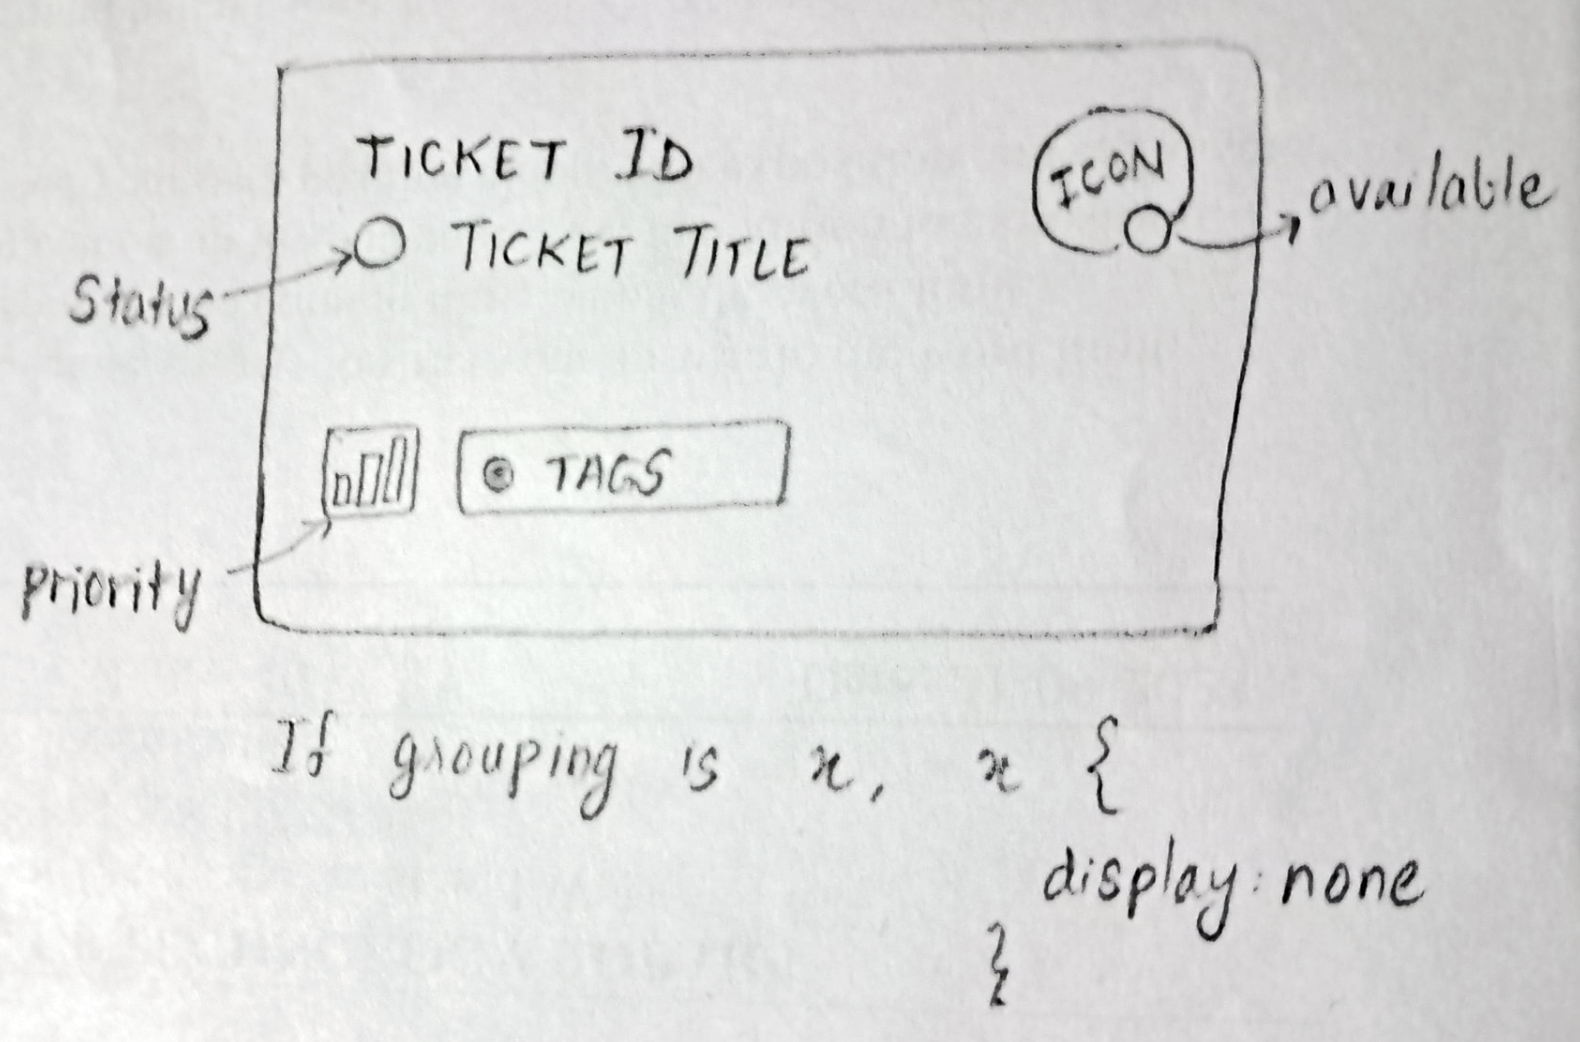 TICKET ID
ICON
available
Status
TICKET TITLE
TAGS
priority
If grouping is x, x {
display: none
}